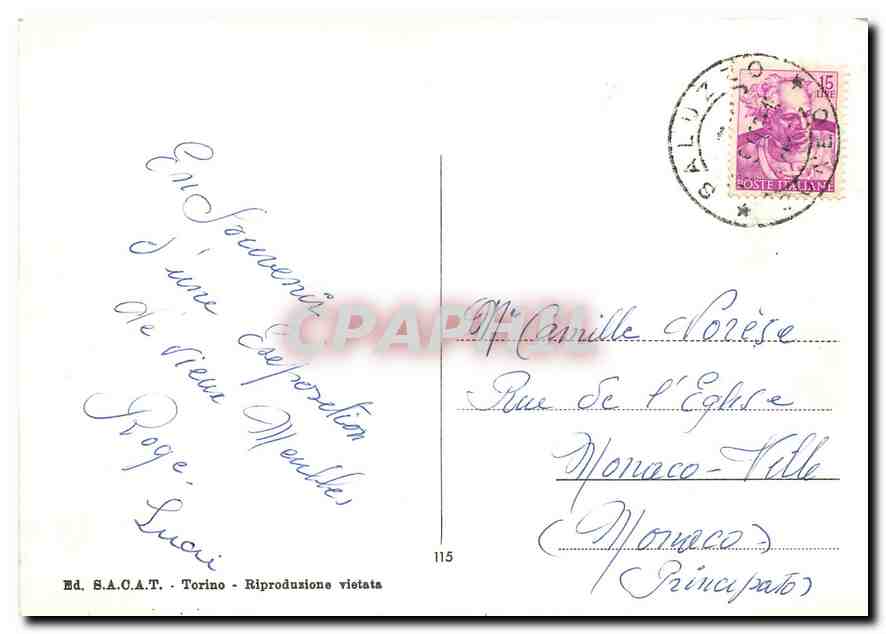 En Souvenir
d'une Exposition
de vieux Meubles
Roge.
Lucie
Ed. S.A.C.A.T. - Torino - Riproduzione vietata
115
SALUZZO
15
LIRE
POSTE ITALIANE
CPAPHIL
Mr Camille Norèse
Rue de l'Eglise
Monaco-Ville
(Monaco)
(Principato)